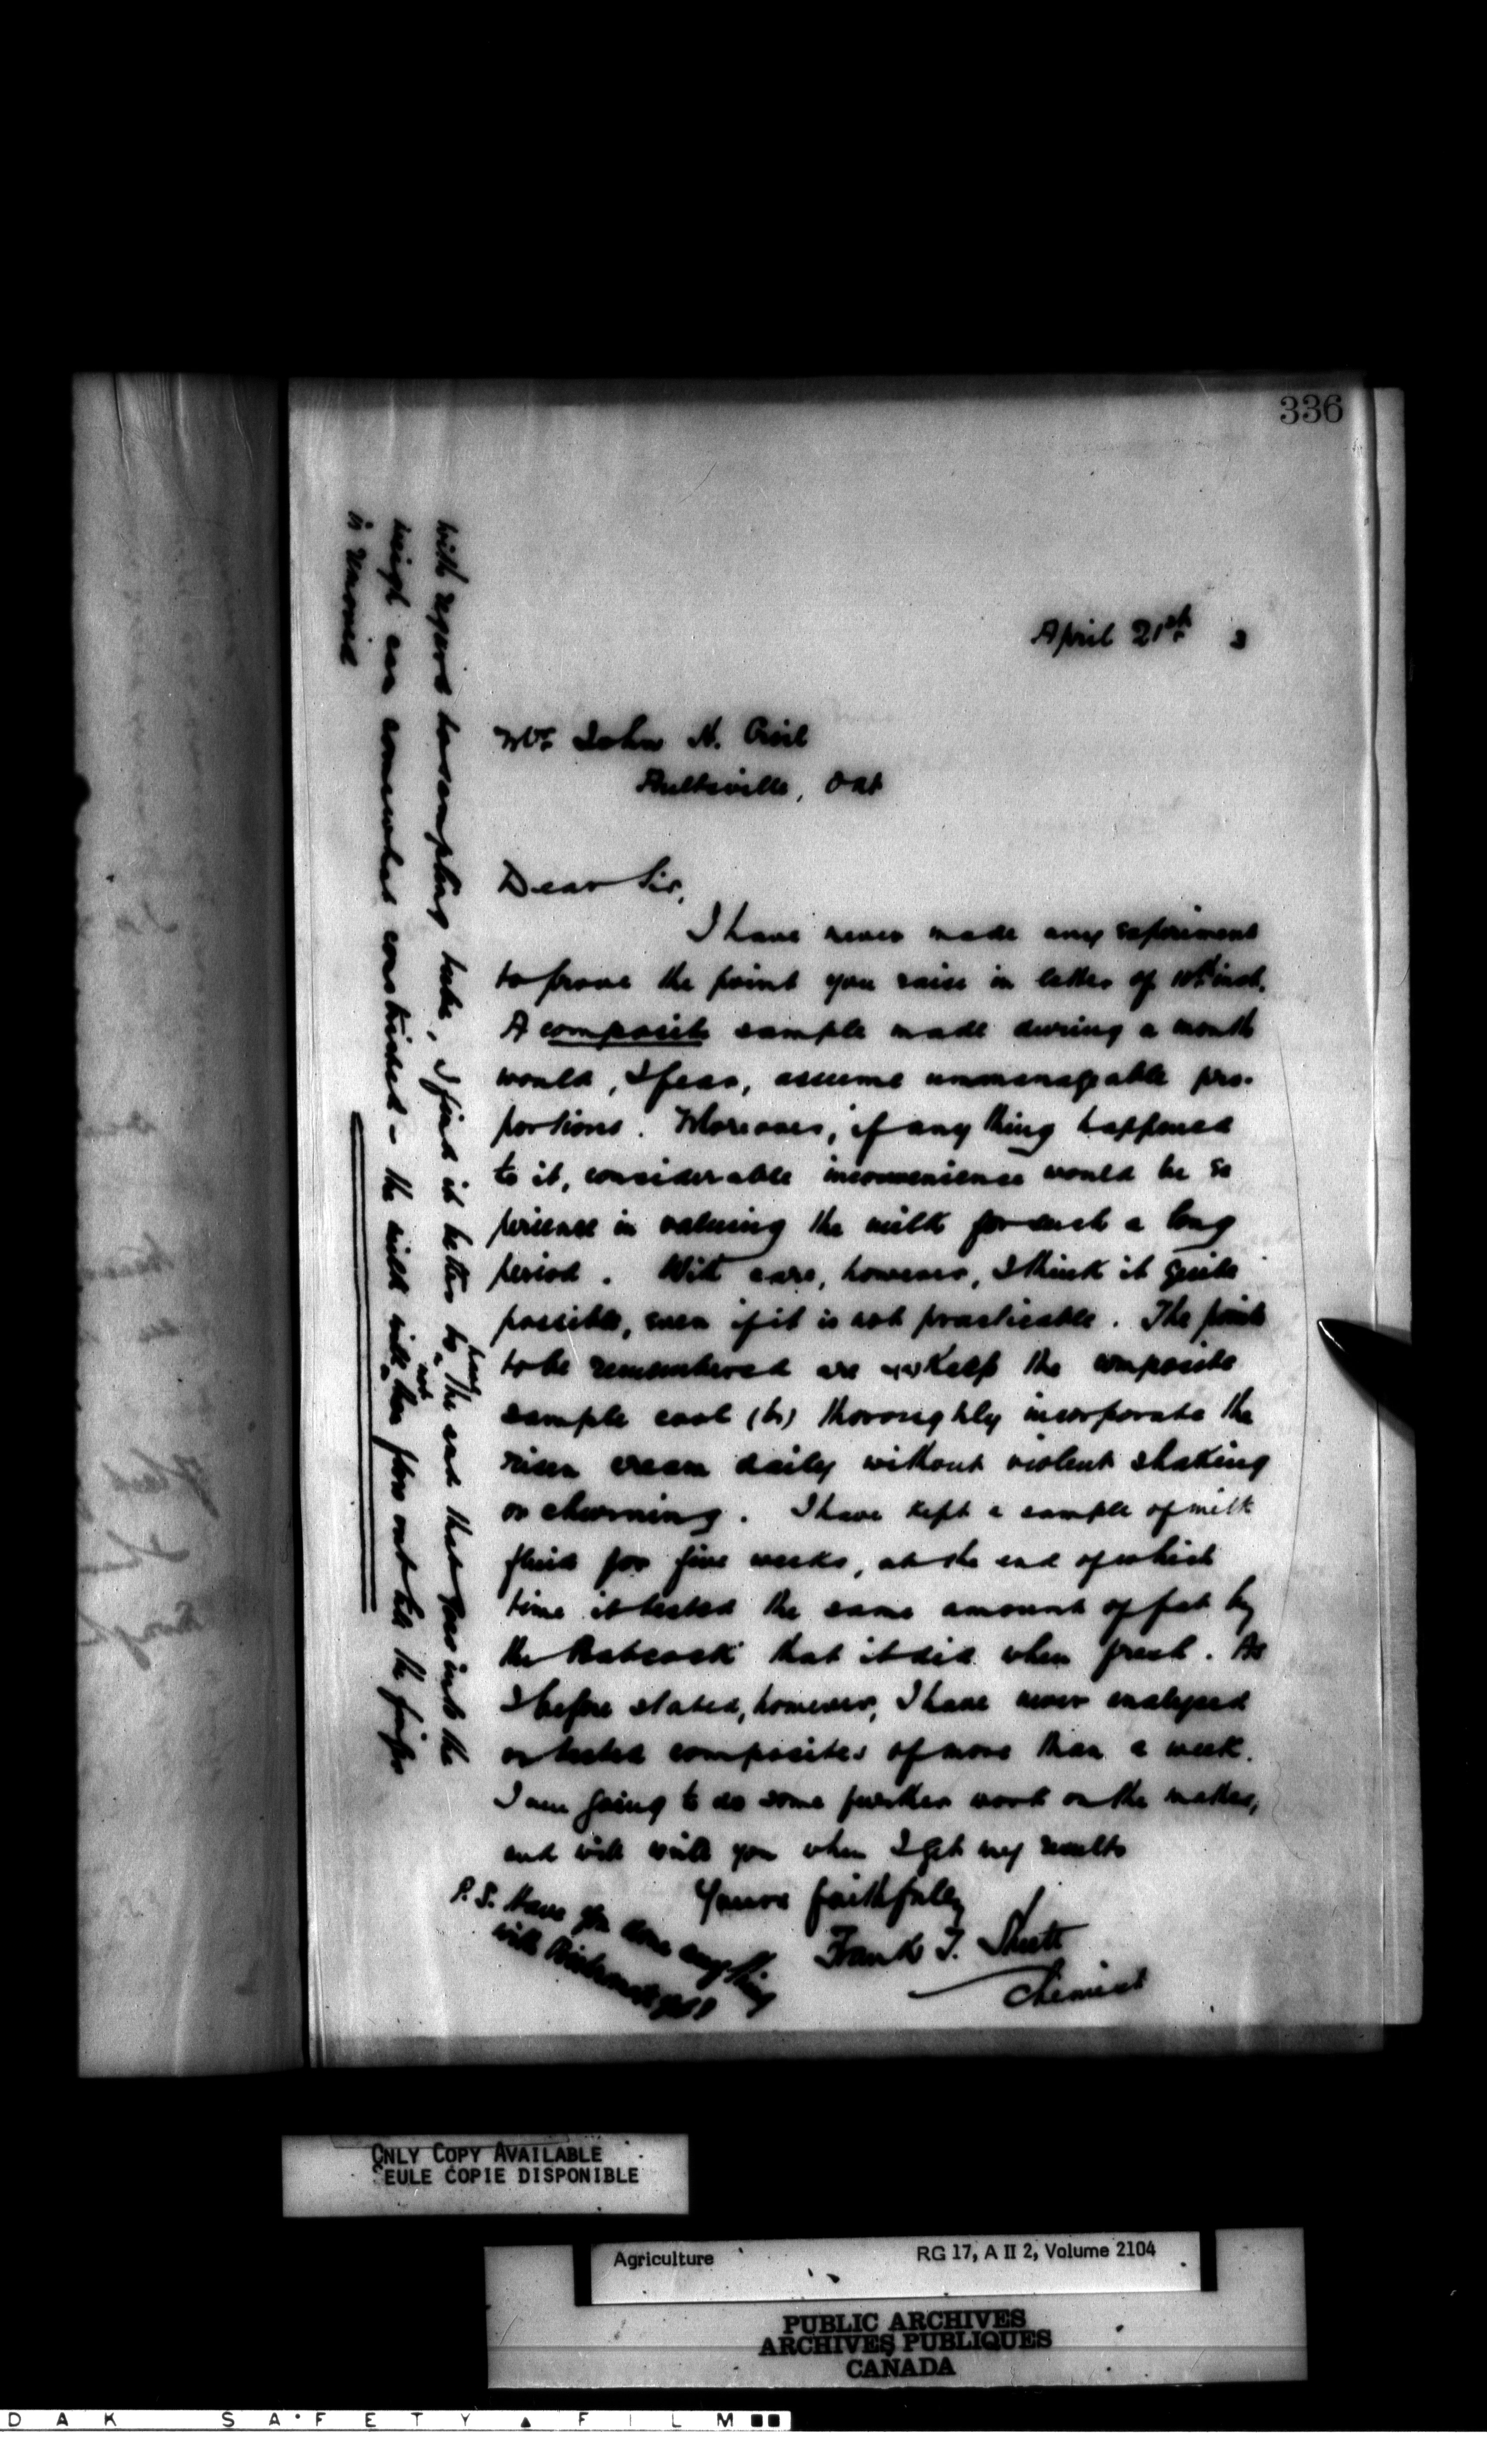 336
April 21st 3
Mr. John N.
Aultsville, Ont
Dear Sir,
I have never made any experiment
to prove the point you raise in letter of inst.
A composite sample made during a month
would, I fear, assume unmanageable pro-
portions. Moreover, if any thing happened
to it, considerable inconvenience would be ex
perienced in valuing the milk for such a long
period. With care, however, I think it quite
possible, even if it is not practicable. The points
to be remembered are (a) Keep the composite
sample cool (b) thoroughly incorporate the
risen cream daily without violent shaking
or churning. I have kept a sample of milk
fluid for five weeks, at the end of which
time it tested the same amount of fat by
the Babcock that it did when fresh. As
I before stated, however, I have never analysed
or tested composites of more than a week.
I am going to do some further work on the matter,
and will write you when I get my results
Yours faithfully
Frank T. Shutt
Chemist
P.S. Have you done anything
with
with regard to sampling tube, I find it better to have the end that goes into the
somewhat constricted - the milk will not then flow out till the finger
is removed
ONLY COPY AVAILABLE
SEULE COPIE DISPONIBLE
Agriculture RG 17, A II 2, Volume 2104
PUBLIC ARCHIVES
ARCHIVES PUBLIQUES
CANADA
DAK SAFETY FILM